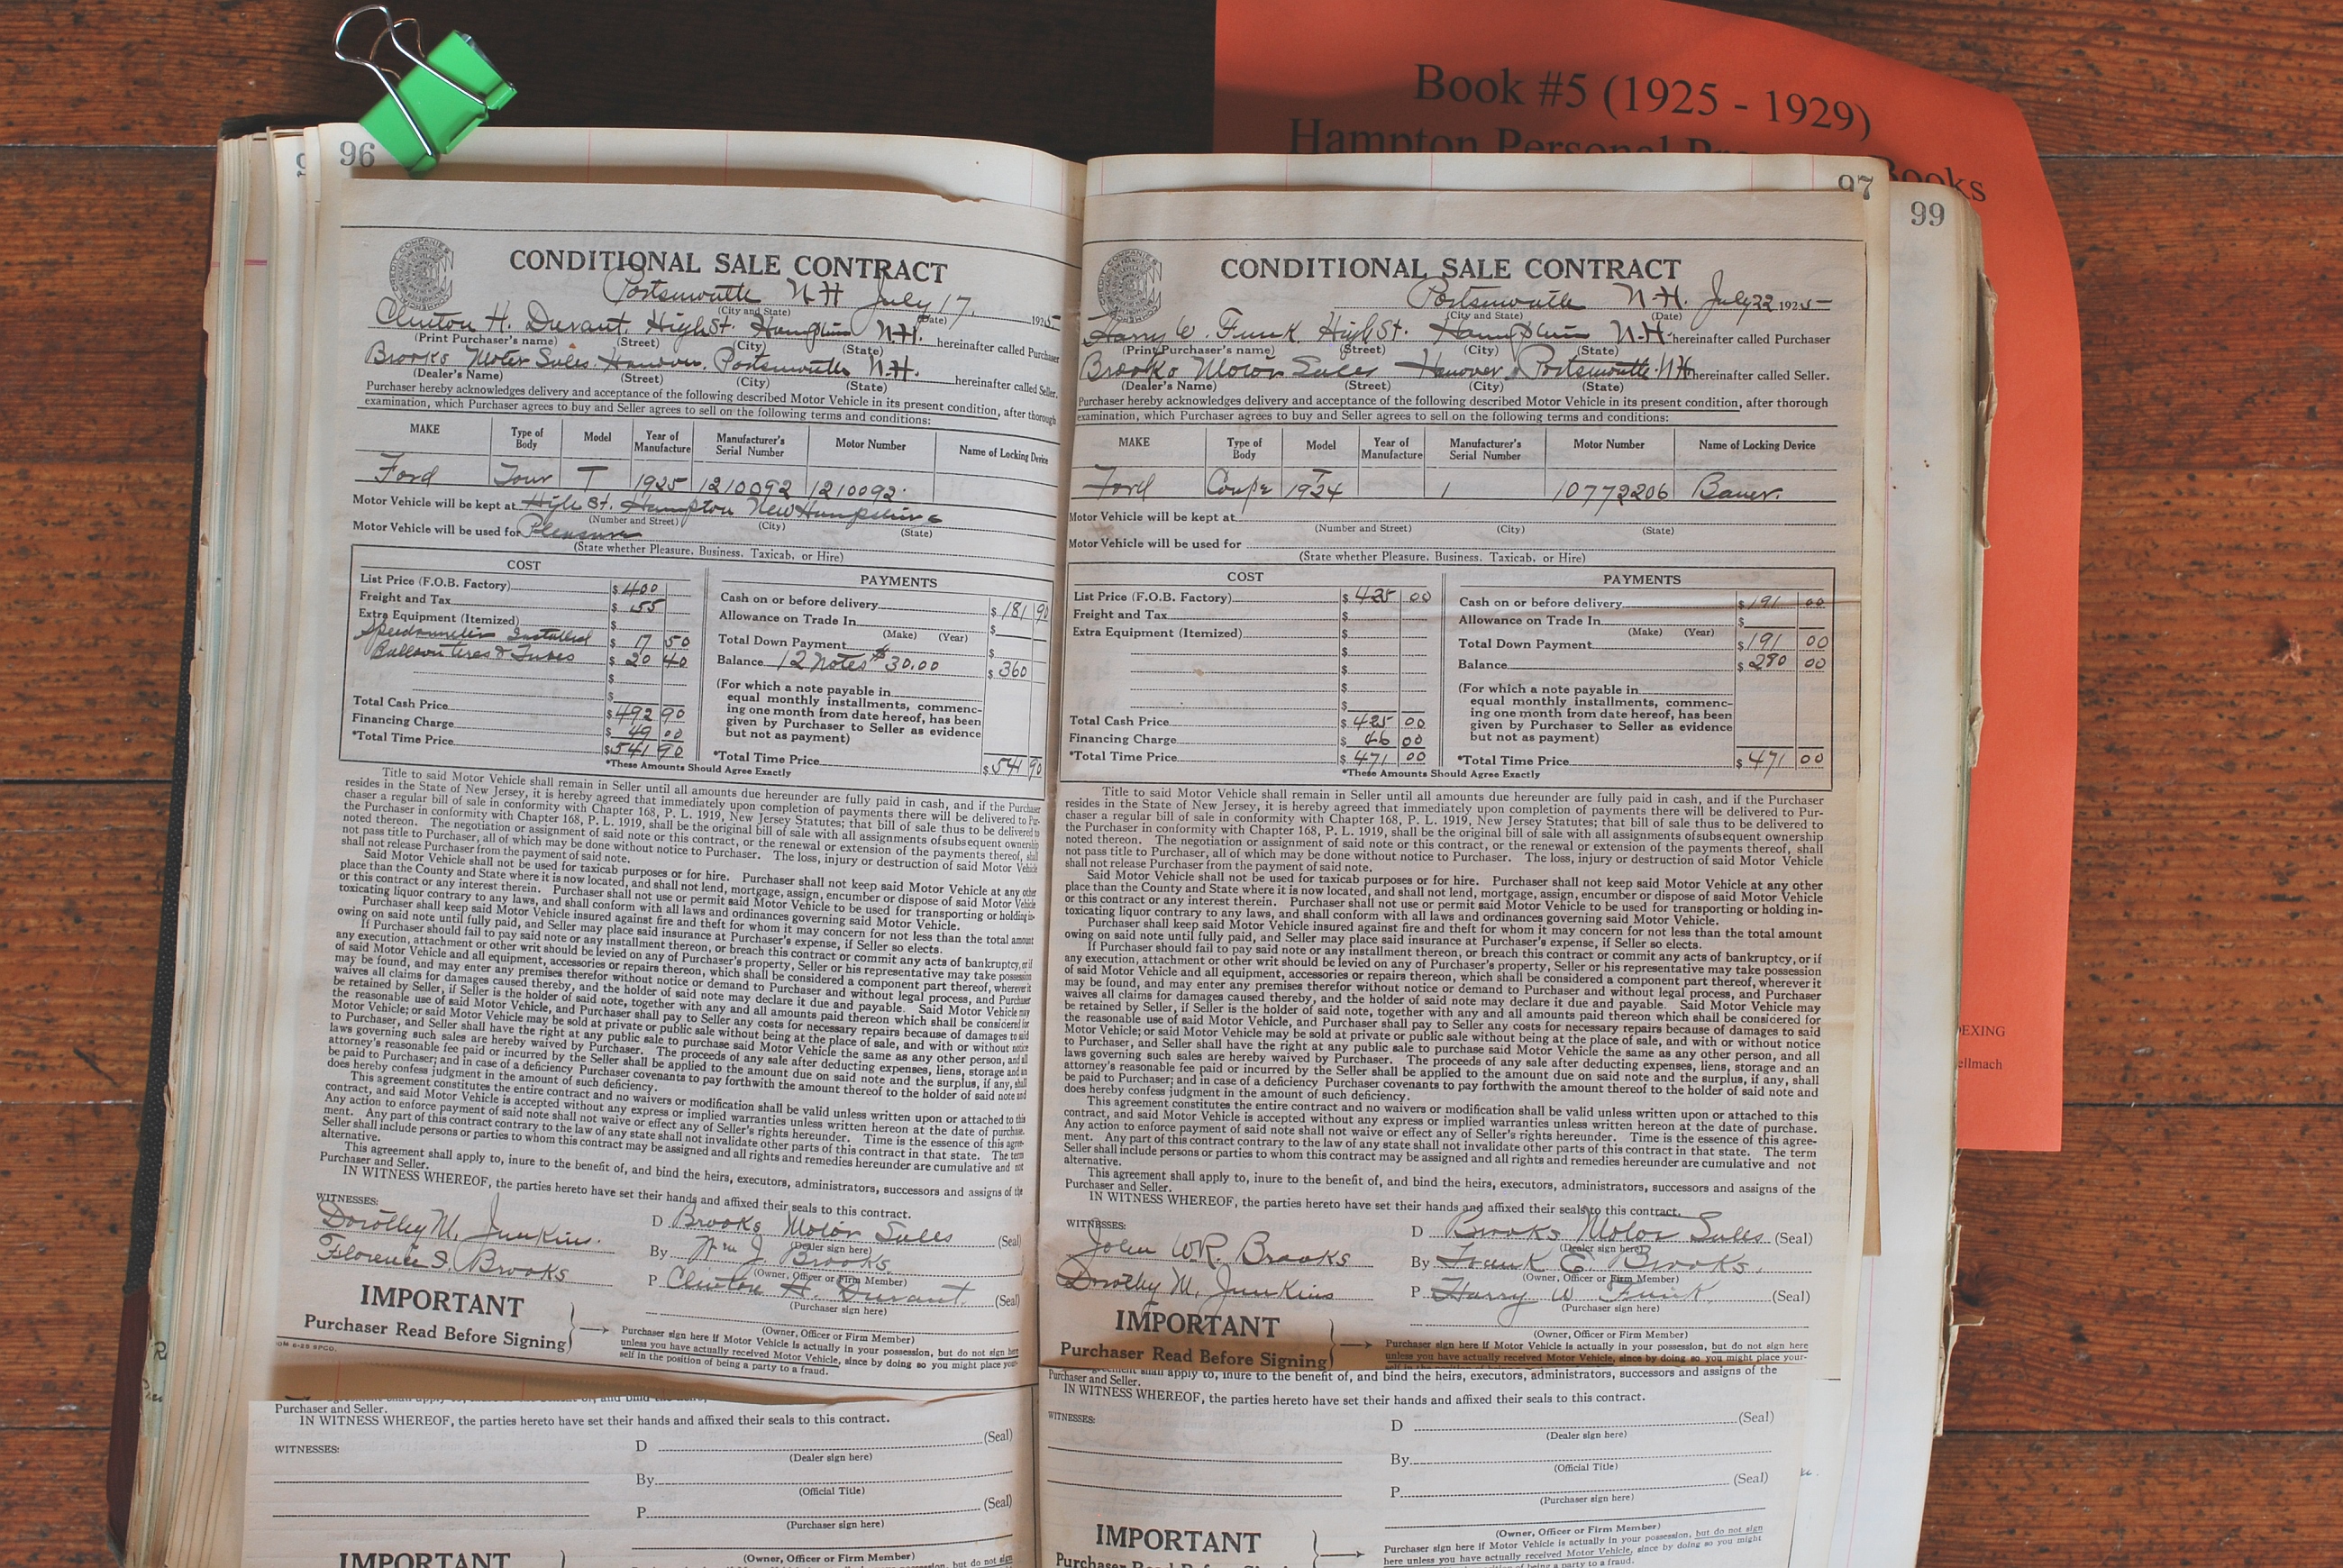 Book #5 (1925 - 1929)
Hampton Personal
Books
96
CONDITIONAL SALE CONTRACT
Portsmouth N H July 17, 1925
(City and State) (Date)
Clinton H. Durant. High St. Hampton N.H. hereinafter called Purchaser
(Print Purchaser's name) (Street) (City) (State)
Brooks Motor Sales. Hanover. Portsmouth N.H. hereinafter called Seller.
(Dealer's Name) (Street) (City) (State)
Purchaser hereby acknowledges delivery and acceptance of the following described Motor Vehicle in its present condition, after thorough
examination, which Purchaser agrees to buy and Seller agrees to sell on the following terms and conditions:
MAKE Type of Body Model Year of Manufacture Manufacturer's Serial Number Motor Number Name of Locking Device
Ford Tour T 1925 1210092 1210092
Motor Vehicle will be kept at High St. Hampton New Hampshire
(Number and Street) (City) (State)
Motor Vehicle will be used for Pleasure
(State whether Pleasure, Business, Taxicab, or Hire)
COST PAYMENTS
List Price (F.O.B. Factory) $ 400
Freight and Tax $ 55
Extra Equipment (Itemized) $
Speedometer Installed $ 17 50
Balloon tires & Tubes $ 20 40
$
$
Total Cash Price $ 492 90
Financing Charge $ 49 00
*Total Time Price $ 541 90
Cash on or before delivery $ 181 90
Allowance on Trade In $
(Make) (Year)
Total Down Payment $
Balance 12 Notes $30.00 $ 360
(For which a note payable in
equal monthly installments, commenc-
ing one month from date hereof, has been
given by Purchaser to Seller as evidence
but not as payment)
*Total Time Price $ 541 90
*These Amounts Should Agree Exactly
Title to said Motor Vehicle shall remain in Seller until all amounts due hereunder are fully paid in cash, and if the Purchaser
resides in the State of New Jersey, it is hereby agreed that immediately upon completion of payments there will be delivered to Pur-
chaser a regular bill of sale in conformity with Chapter 168, P. L. 1919, New Jersey Statutes; that bill of sale thus to be delivered to
the Purchaser in conformity with Chapter 168, P. L. 1919, shall be the original bill of sale with all assignments of subsequent ownership
noted thereon. The negotiation or assignment of said note or this contract, or the renewal or extension of the payments thereof, shall
not pass title to Purchaser, all of which may be done without notice to Purchaser. The loss, injury or destruction of said Motor Vehicle
shall not release Purchaser from the payment of said note.
Said Motor Vehicle shall not be used for taxicab purposes or for hire. Purchaser shall not keep said Motor Vehicle at any other
place than the County and State where it is now located, and shall not lend, mortgage, assign, encumber or dispose of said Motor Vehicle
or this contract or any interest therein. Purchaser shall not use or permit said Motor Vehicle to be used for transporting or holding in-
toxicating liquor contrary to any laws, and shall conform with all laws and ordinances governing said Motor Vehicle.
Purchaser shall keep said Motor Vehicle insured against fire and theft for whom it may concern for not less than the total amount
owing on said note until fully paid, and Seller may place said insurance at Purchaser's expense, if Seller so elects.
If Purchaser should fail to pay said note or any installment thereon, or breach this contract or commit any acts of bankruptcy, or if
any execution, attachment or other writ should be levied on any of Purchaser's property, Seller or his representative may take possession
of said Motor Vehicle and all equipment, accessories or repairs thereon, which shall be considered a component part thereof, wherever it
may be found, and may enter any premises therefor without notice or demand to Purchaser and without legal process, and Purchaser
waives all claims for damages caused thereby, and the holder of said note may declare it due and payable. Said Motor Vehicle may
be retained by Seller, if Seller is the holder of said note, together with any and all amounts paid thereon which shall be considered for
the reasonable use of said Motor Vehicle, and Purchaser shall pay to Seller any costs for necessary repairs because of damages to said
Motor Vehicle; or said Motor Vehicle may be sold at private or public sale without being at the place of sale, and with or without notice
to Purchaser, and Seller shall have the right at any public sale to purchase said Motor Vehicle the same as any other person, and all
laws governing such sales are hereby waived by Purchaser. The proceeds of any sale after deducting expenses, liens, storage and an
attorney's reasonable fee paid or incurred by the Seller shall be applied to the amount due on said note and the surplus, if any, shall
be paid to Purchaser; and in case of a deficiency Purchaser covenants to pay forthwith the amount thereof to the holder of said note and
does hereby confess judgment in the amount of such deficiency.
This agreement constitutes the entire contract and no waivers or modification shall be valid unless written upon or attached to this
contract, and said Motor Vehicle is accepted without any express or implied warranties unless written hereon at the date of purchase.
Any action to enforce payment of said note shall not waive or effect any of Seller's rights hereunder. Time is the essence of this agree-
ment. Any part of this contract contrary to the law of any state shall not invalidate other parts of this contract in that state. The term
Seller shall include persons or parties to whom this contract may be assigned and all rights and remedies hereunder are cumulative and not
alternative.
This agreement shall apply to, inure to the benefit of, and bind the heirs, executors, administrators, successors and assigns of the
Purchaser and Seller.
IN WITNESS WHEREOF, the parties hereto have set their hands and affixed their seals to this contract.
WITNESSES:
Dorothy M. Junkins. D Brooks Motor Sales (Seal)
(Dealer sign here)
Florence I. Brooks By Wm J Brooks
(Owner, Officer or Firm Member)
P Clinton H. Durant. (Seal)
(Purchaser sign here)
IMPORTANT
Purchaser Read Before Signing
(Owner, Officer or Firm Member)
Purchaser sign here if Motor Vehicle is actually in your possession, but do not sign here
unless you have actually received Motor Vehicle, since by doing so you might place your-
self in the position of being a party to a fraud.
Purchaser and Seller.
IN WITNESS WHEREOF, the parties hereto have set their hands and affixed their seals to this contract.
WITNESSES:
D (Seal)
(Dealer sign here)
By
(Official Title)
P (Seal)
(Purchaser sign here)
IMPORTANT
(Owner, Officer or Firm Member)
97
99
CONDITIONAL SALE CONTRACT
Portsmouth N.H. July 22 1925
(City and State) (Date)
Harry W. Funk High St. Hampton N.H. hereinafter called Purchaser
(Print Purchaser's name) (Street) (City) (State)
Brooks Motor Sales Hanover, Portsmouth. NH hereinafter called Seller.
(Dealer's Name) (Street) (City) (State)
Purchaser hereby acknowledges delivery and acceptance of the following described Motor Vehicle in its present condition, after thorough
examination, which Purchaser agrees to buy and Seller agrees to sell on the following terms and conditions:
MAKE Type of Body Model Year of Manufacture Manufacturer's Serial Number Motor Number Name of Locking Device
Ford Coupe T 1924 10772206 Bauer.
Motor Vehicle will be kept at
(Number and Street) (City) (State)
Motor Vehicle will be used for
(State whether Pleasure, Business, Taxicab, or Hire)
COST PAYMENTS
List Price (F.O.B. Factory) $ 425 00
Freight and Tax $
Extra Equipment (Itemized) $
$
$
$
$
Total Cash Price $ 425 00
Financing Charge $ 46 00
*Total Time Price $ 471 00
Cash on or before delivery $ 191 00
Allowance on Trade In $
(Make) (Year)
Total Down Payment $ 191 00
Balance $ 280 00
(For which a note payable in
equal monthly installments, commenc-
ing one month from date hereof, has been
given by Purchaser to Seller as evidence
but not as payment)
*Total Time Price $ 471 00
*These Amounts Should Agree Exactly
Title to said Motor Vehicle shall remain in Seller until all amounts due hereunder are fully paid in cash, and if the Purchaser
resides in the State of New Jersey, it is hereby agreed that immediately upon completion of payments there will be delivered to Pur-
chaser a regular bill of sale in conformity with Chapter 168, P. L. 1919, New Jersey Statutes; that bill of sale thus to be delivered to
the Purchaser in conformity with Chapter 168, P. L. 1919, shall be the original bill of sale with all assignments of subsequent ownership
noted thereon. The negotiation or assignment of said note or this contract, or the renewal or extension of the payments thereof, shall
not pass title to Purchaser, all of which may be done without notice to Purchaser. The loss, injury or destruction of said Motor Vehicle
shall not release Purchaser from the payment of said note.
Said Motor Vehicle shall not be used for taxicab purposes or for hire. Purchaser shall not keep said Motor Vehicle at any other
place than the County and State where it is now located, and shall not lend, mortgage, assign, encumber or dispose of said Motor Vehicle
or this contract or any interest therein. Purchaser shall not use or permit said Motor Vehicle to be used for transporting or holding in-
toxicating liquor contrary to any laws, and shall conform with all laws and ordinances governing said Motor Vehicle.
Purchaser shall keep said Motor Vehicle insured against fire and theft for whom it may concern for not less than the total amount
owing on said note until fully paid, and Seller may place said insurance at Purchaser's expense, if Seller so elects.
If Purchaser should fail to pay said note or any installment thereon, or breach this contract or commit any acts of bankruptcy, or if
any execution, attachment or other writ should be levied on any of Purchaser's property, Seller or his representative may take possession
of said Motor Vehicle and all equipment, accessories or repairs thereon, which shall be considered a component part thereof, wherever it
may be found, and may enter any premises therefor without notice or demand to Purchaser and without legal process, and Purchaser
waives all claims for damages caused thereby, and the holder of said note may declare it due and payable. Said Motor Vehicle may
be retained by Seller, if Seller is the holder of said note, together with any and all amounts paid thereon which shall be considered for
the reasonable use of said Motor Vehicle, and Purchaser shall pay to Seller any costs for necessary repairs because of damages to said
Motor Vehicle; or said Motor Vehicle may be sold at private or public sale without being at the place of sale, and with or without notice
to Purchaser, and Seller shall have the right at any public sale to purchase said Motor Vehicle the same as any other person, and all
laws governing such sales are hereby waived by Purchaser. The proceeds of any sale after deducting expenses, liens, storage and an
attorney's reasonable fee paid or incurred by the Seller shall be applied to the amount due on said note and the surplus, if any, shall
be paid to Purchaser; and in case of a deficiency Purchaser covenants to pay forthwith the amount thereof to the holder of said note and
does hereby confess judgment in the amount of such deficiency.
This agreement constitutes the entire contract and no waivers or modification shall be valid unless written upon or attached to this
contract, and said Motor Vehicle is accepted without any express or implied warranties unless written hereon at the date of purchase.
Any action to enforce payment of said note shall not waive or effect any of Seller's rights hereunder. Time is the essence of this agree-
ment. Any part of this contract contrary to the law of any state shall not invalidate other parts of this contract in that state. The term
Seller shall include persons or parties to whom this contract may be assigned and all rights and remedies hereunder are cumulative and not
alternative.
This agreement shall apply to, inure to the benefit of, and bind the heirs, executors, administrators, successors and assigns of the
Purchaser and Seller.
IN WITNESS WHEREOF, the parties hereto have set their hands and affixed their seals to this contract.
WITNESSES:
John W.R. Brooks D Brooks Motor Sales (Seal)
(Dealer sign here)
Dorothy M. Junkins By Frank E. Brooks.
(Owner, Officer or Firm Member)
P Harry W Funk (Seal)
(Purchaser sign here)
IMPORTANT
Purchaser Read Before Signing
(Owner, Officer or Firm Member)
Purchaser sign here if Motor Vehicle is actually in your possession, but do not sign here
unless you have actually received Motor Vehicle, since by doing so you might place your-
shall apply to, inure to the benefit of, and bind the heirs, executors, administrators, successors and assigns of the
Purchaser and Seller.
IN WITNESS WHEREOF, the parties hereto have set their hands and affixed their seals to this contract.
WITNESSES:
D (Seal)
(Dealer sign here)
By
(Official Title)
P (Seal)
(Purchaser sign here)
IMPORTANT
(Owner, Officer or Firm Member)
Purchaser sign here if Motor Vehicle is actually in your possession, but do not sign
here unless you have actually received Motor Vehicle, since by doing so you might
place yourself in the position of being a party to a fraud.
EXING
ellmach